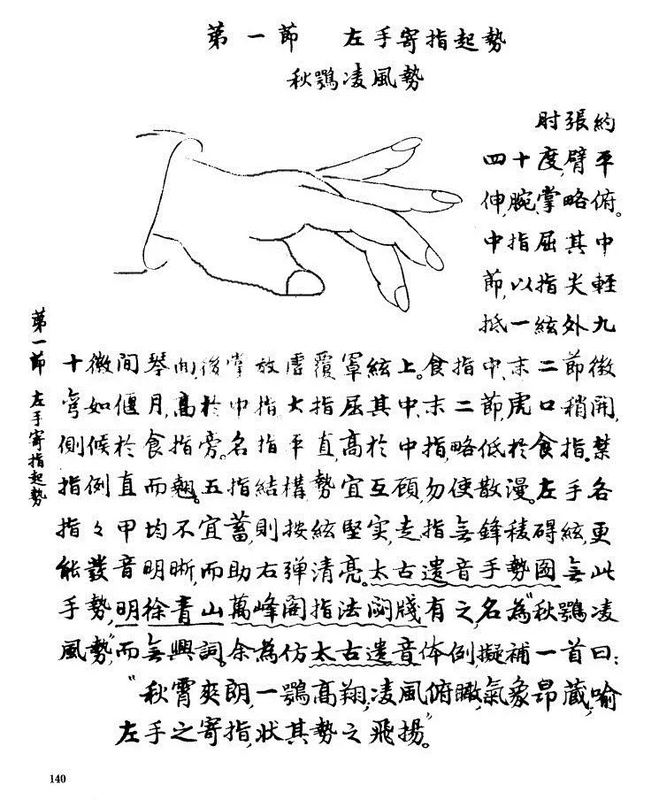 第一節 左手寄指起勢
秋鶚凌風勢
肘張約
四十度,臂平
伸,腕、掌略俯。
中指屈其中
節,以指尖輕
抵一絃外九
十徽間琴面,後掌放覆罩絃上。食指中、末二節微
彎如偃月,高於中指。大指屈其中、末二節,虎口稍開,
側候於食指旁。名指平直,高於中指,略低於食指。禁
指例直而翹。五指結構勢宜互顧,勿使散漫。左手各
指々甲均不宜蓄,則按絃堅实,走指無鋒稜碍絃,更
能發音明晰,而助右弹清亮。太古遺音手勢圖無此
手勢,明徐青山萬峰閣指法閟牋有之,名為“秋鶚凌
風勢”,而無興詞。余為仿太古遺音体例,擬補一首曰:
“秋霄爽朗,一鶚高翔,凌風俯瞰,氣象昂藏,喻
左手之寄指,狀其勢之飛揚。”
第一節 左手寄指起勢
140